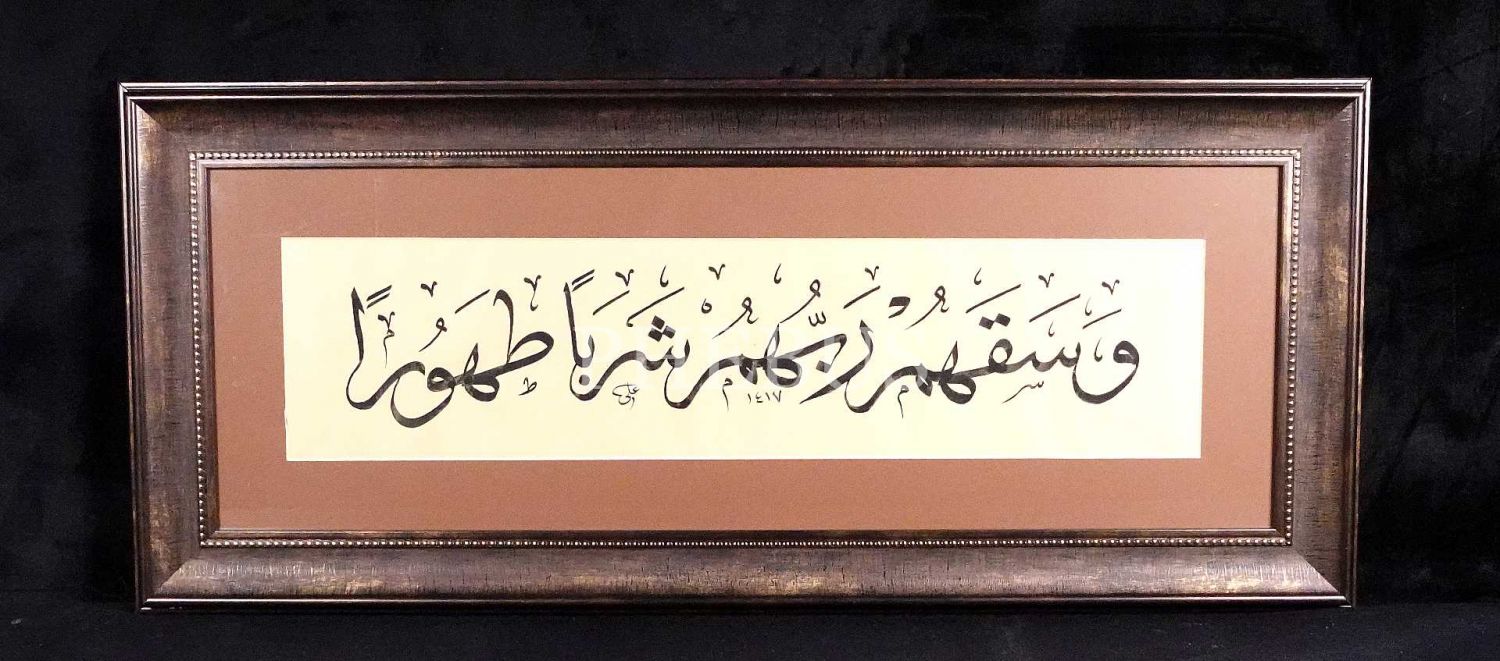 وَسَقَهُمْ رَبُّهُمْ شَرَبًا طَهُورًا
١٤١٧